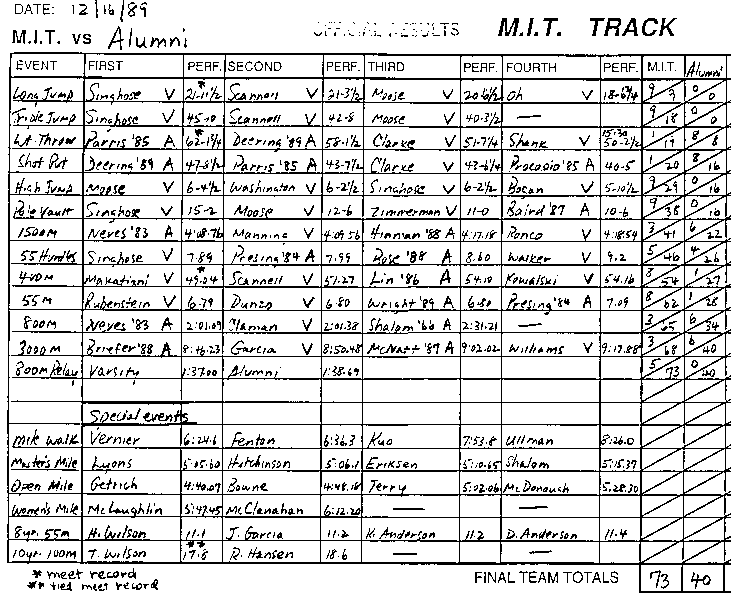 DATE: 12/16/89
OFFICIAL RESULTS M.I.T. TRACK
M.I.T. vs Alumni
EVENT FIRST PERF. SECOND PERF. THIRD PERF. FOURTH PERF. M.I.T. Alumni
Long Jump Singhose V 21-11½ * Scannell V 21-3½ Moose V 20-6½ Oh V 18-6¾ 9 9 0 0
Triple Jump Singhose V 45-10 Scannell V 42-8 Moose V 40-3½ — 9 18 0 0
Wt. Throw Parris '85 A 62-1¾ * Deering '89 A 58-1½ Clarke V 51-7¼ Shank V 50-2½ 1 19 8 8
Shot Put Deering '89 A 47-8½ Parris '85 A 43-7½ Clarke V 43-6¼ Procopio '85 A 40-5 1 20 8 16
High Jump Moose V 6-4½ Washington V 6-2½ Singhose V 6-2½ Bocan V 5-10½ 9 29 0 16
Pole Vault Singhose V 15-2 Moose V 12-6 Zimmerman V 11-0 Baird '87 A 10-6 9 38 0 16
1500M Neves '83 A 4:08.76 Manning V 4:09.56 Hinnian '88 A 4:17.18 Ronco V 4:18.54 3 41 6 22
55 Hurdles Singhose V 7.89 Presing '84 A 7.99 Rose '88 A 8.60 Walker V 9.2 5 46 4 26
400M Makatiani V 49.04 * Scannell V 51.27 Lin '86 A 54.10 Kowalski V 54.16 8 54 1 27
55M Rubenstein V 6.79 Dunzo V 6.80 Wright '89 A 6.80 Presing '84 A 7.09 8 62 1 28
800M Neves '83 A 2:01.09 Claman V 2:01.38 Shalom '66 A 2:31.21 — 3 65 6 34
3000M Briefer '88 A 8:46.23 Garcia V 8:50.48 McNatt '87 A 9:02.02 Williams V 9:17.88 3 68 6 40
800M Relay Varsity 1:37.00 Alumni 1:38.69 5 73 0 40
Special events
Mile Walk Vernier 6:24.6 Fenton 6:36.3 Kuo 7:53.8 Ullman 8:26.0
Master's Mile Lyons 5:05.60 Hutchinson 5:06.1 Eriksen 5:10.65 Shalom 5:15.37
Open Mile Getrich 4:40.07 Bowne 4:48.18 Terry 5:02.06 McDonough 5:28.30
Women's Mile McLaughlin 5:47.45 McClanahan 6:12.20 — —
8yr. 55m H. Wilson 11.1 J. Garcia 11.2 K. Anderson 11.2 D. Anderson 11.4
10yr. 100M T. Wilson 17.8 ** R. Hansen 18.6 — —
* meet record
** tied meet record
FINAL TEAM TOTALS 73 40